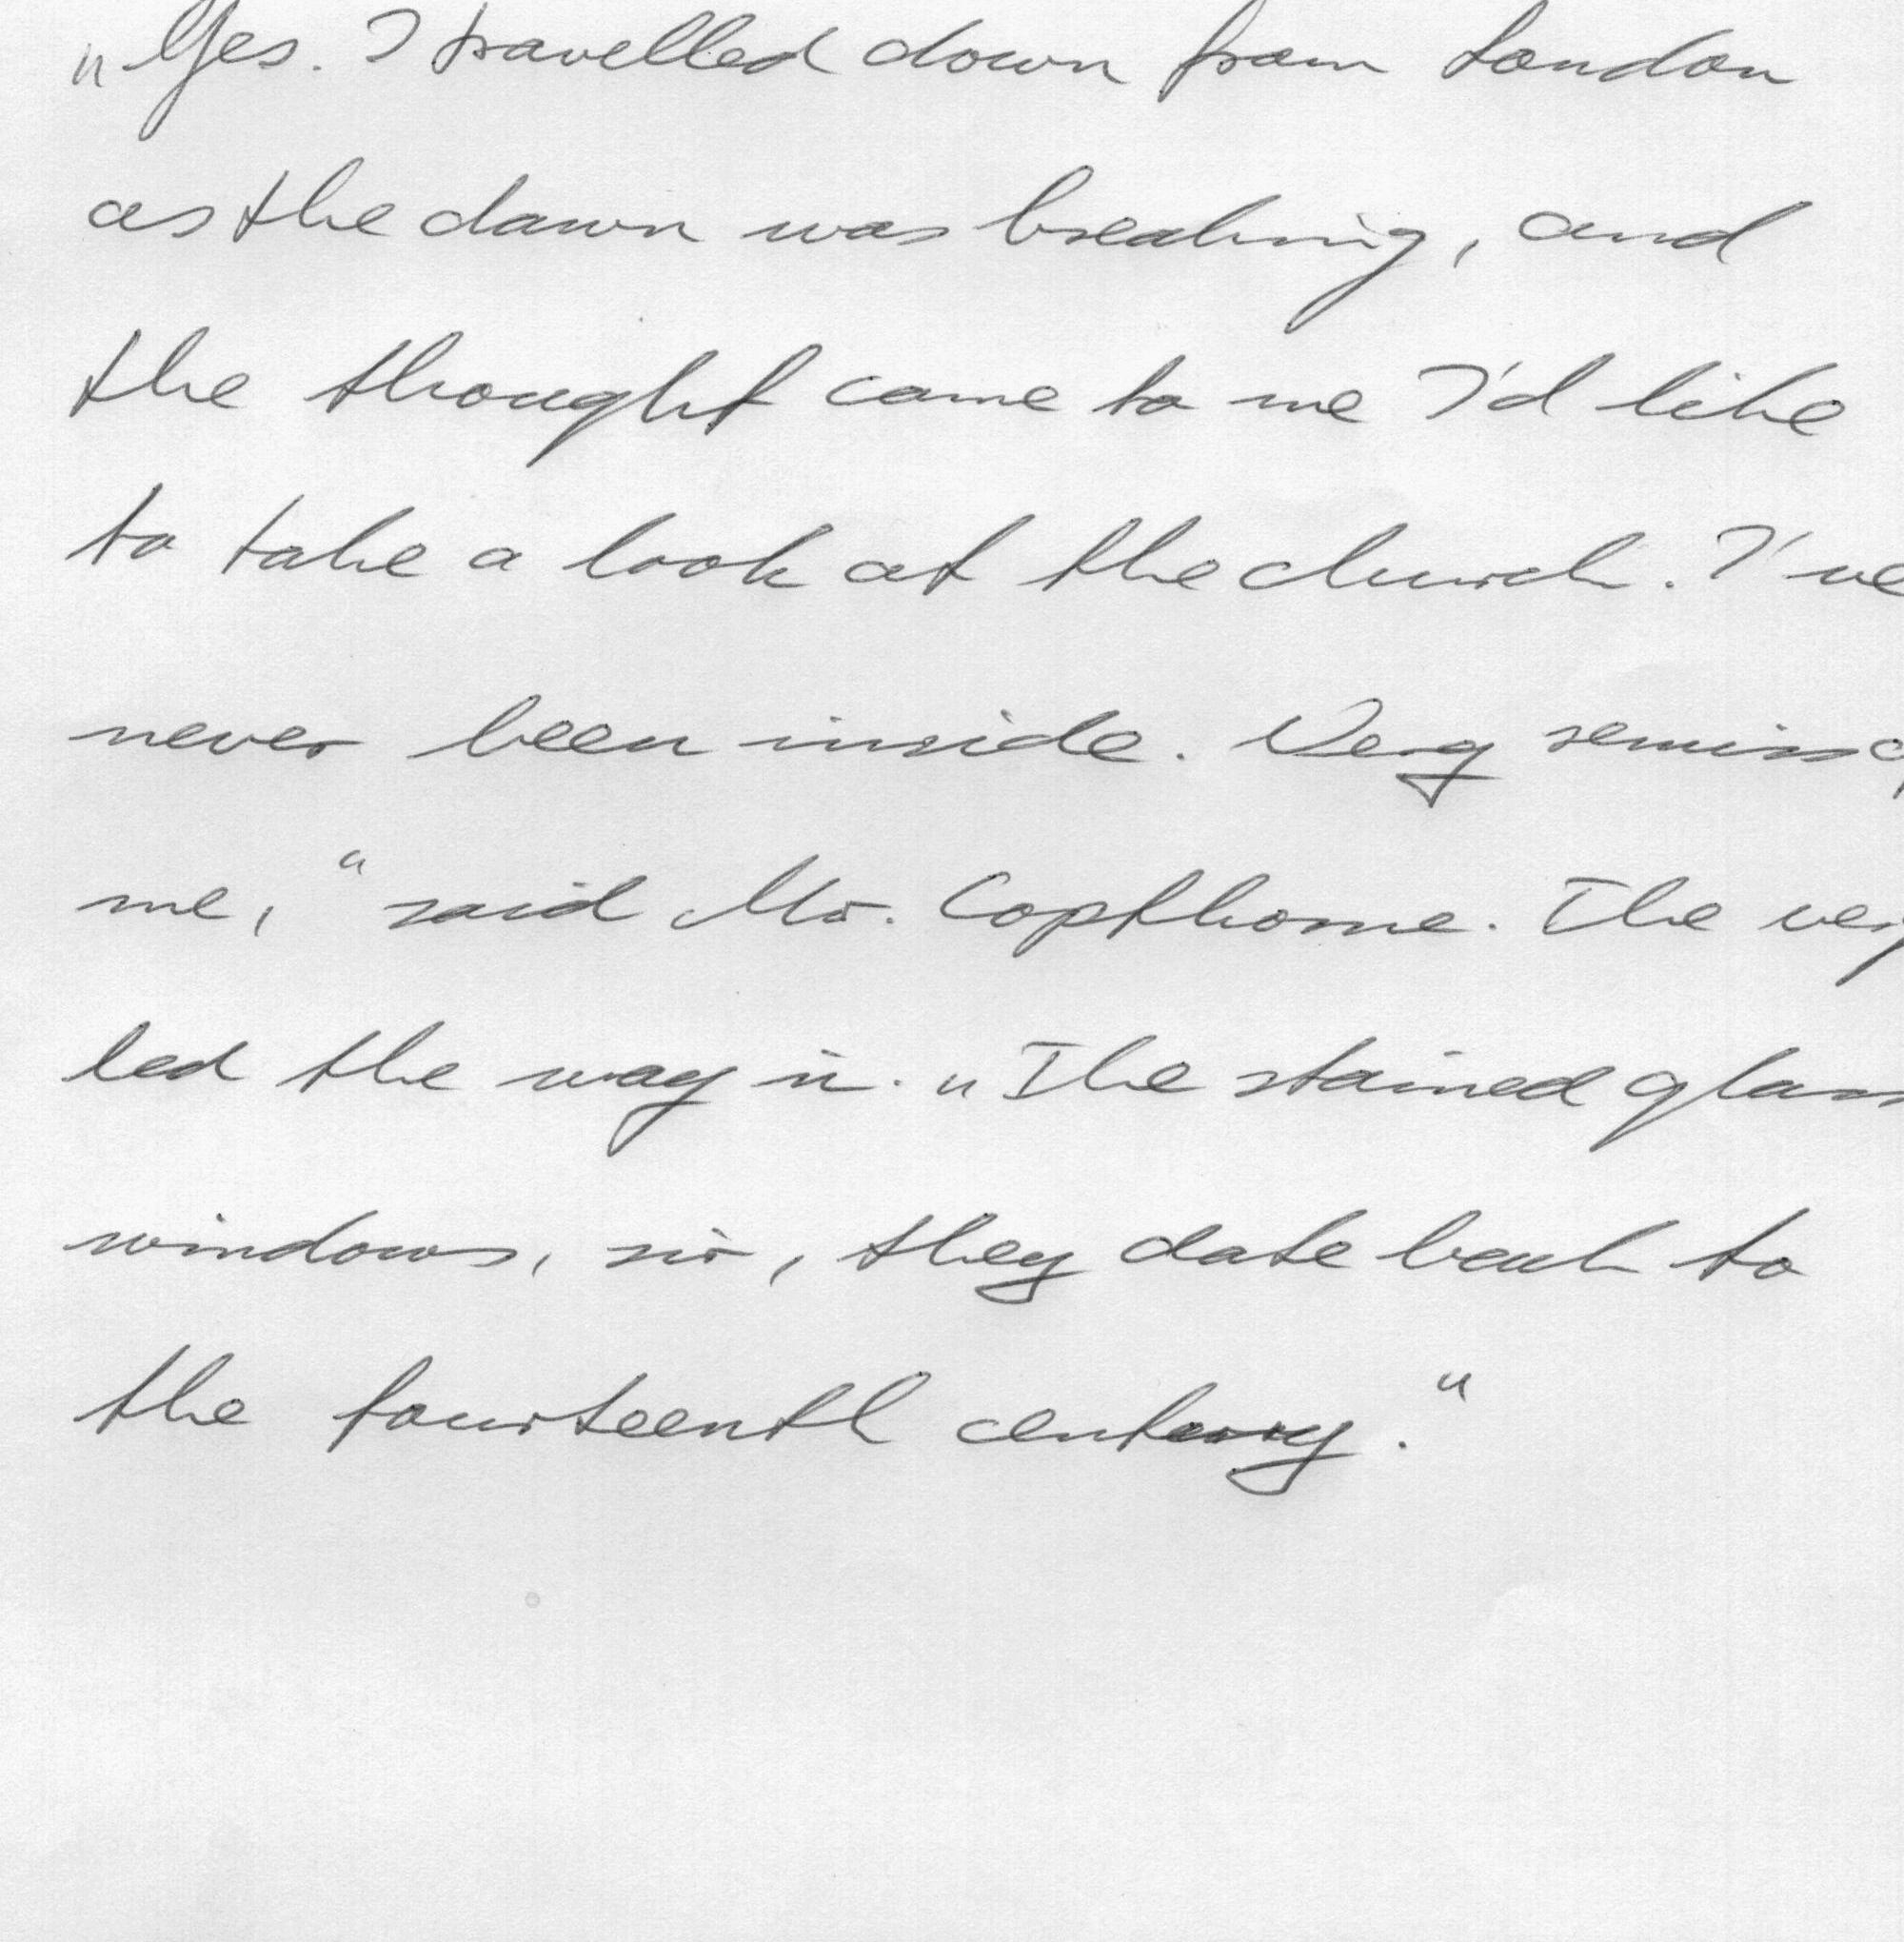 „Yes. I travelled down from London
as the dawn was breaking, and
the thought came to me I'd like
to take a look at the church. I've
never been inside. Very remiss of
me,“ said Mr. Copthorne. The
led the way in. „The stained glass
windows, sir, they date back to
the fourteenth century.“